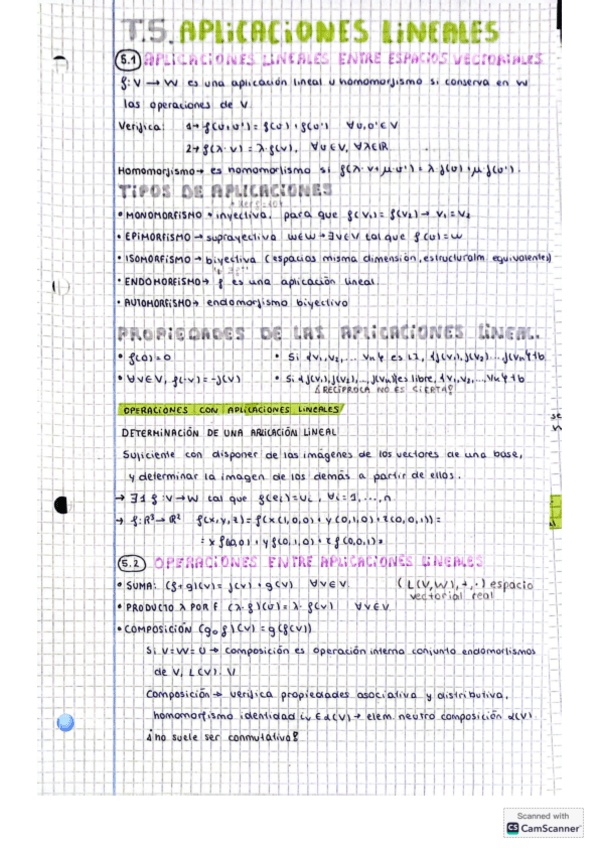 T.5. APLICACIONES LINEALES
5.1 APLICACIONES LINEALES ENTRE ESPACIOS VECTORIALES
f: V → W es una aplicación lineal u homomorfismo si conserva en W
las operaciones de V
Verifica: 1→ f(u+u') = f(u) + f(u') ∀u,u'∈V
2→ f(λ·v) = λ·f(v), ∀u∈V, ∀λ∈ℝ
Homomorfismo → es homomorfismo si f(λ·v+μ·u') = λ f(u)+μ·f(u').
TIPOS DE APLICACIONES
• MONOMORFISMO • inyectiva. para que f(v₁) = f(v₂) → v₁ = v₂
• EPIMORFISMO → suprayectiva w∈W → ∃v∈V tal que f(u)=w
• ISOMORFISMO → biyectiva (espacios misma dimensión, estructuralm equivalentes)
• ENDOMORFISMO → f es una aplicación lineal.
• AUTOMORFISMO → endomorfismo biyectivo
PROPIEDADES DE LAS APLICACIONES LINEAL.
• f(0) = 0 • Si {v₁,v₂,... vn} es l.d, {f(v₁), f(v₂)...f(vn)} tb
• ∀v∈V, f(-v) = -f(v) • Si {f(v₁), f(v₂),..., f(vn)} es libre, {v₁,v₂,..., vn} tb
¿RECÍPROCA NO ES CIERTA?
OPERACIONES CON APLICACIONES LINEALES
DETERMINACIÓN DE UNA APLICACIÓN LINEAL
Suficiente con disponer de las imágenes de los vectores de una base,
y determinar la imagen de los demás a partir de ellos.
→ ∃1 f: V→W tal que f(ei)=vi, ∀i=1,...,n
→ f: R³ → R² f(x,y,z) = f(x(1,0,0) + y(0,1,0) + z(0,0,1)) =
= x f(1,0,0) + y f(0,1,0) + z f(0,0,1) =
5.2 OPERACIONES ENTRE APLICACIONES LINEALES
• SUMA: (f+g)(v) = f(v) + g(v) ∀v∈V (L(V,W),+,·) espacio
vectorial real
• PRODUCTO λ POR F (λ·f)(v) = λ·f(v) ∀v∈V
• COMPOSICIÓN (g∘f)(v) = g(f(v))
Si V=W=U → composición es operación interna conjunto endomorfismos
de V, L(V). V
Composición → verifica propiedades asociativa y distributiva.
homomorfismo identidad iv ∈ L(V) → elem. neutro composición L(V)
¿no suele ser conmutativa?
se
Scanned with
CS CamScanner